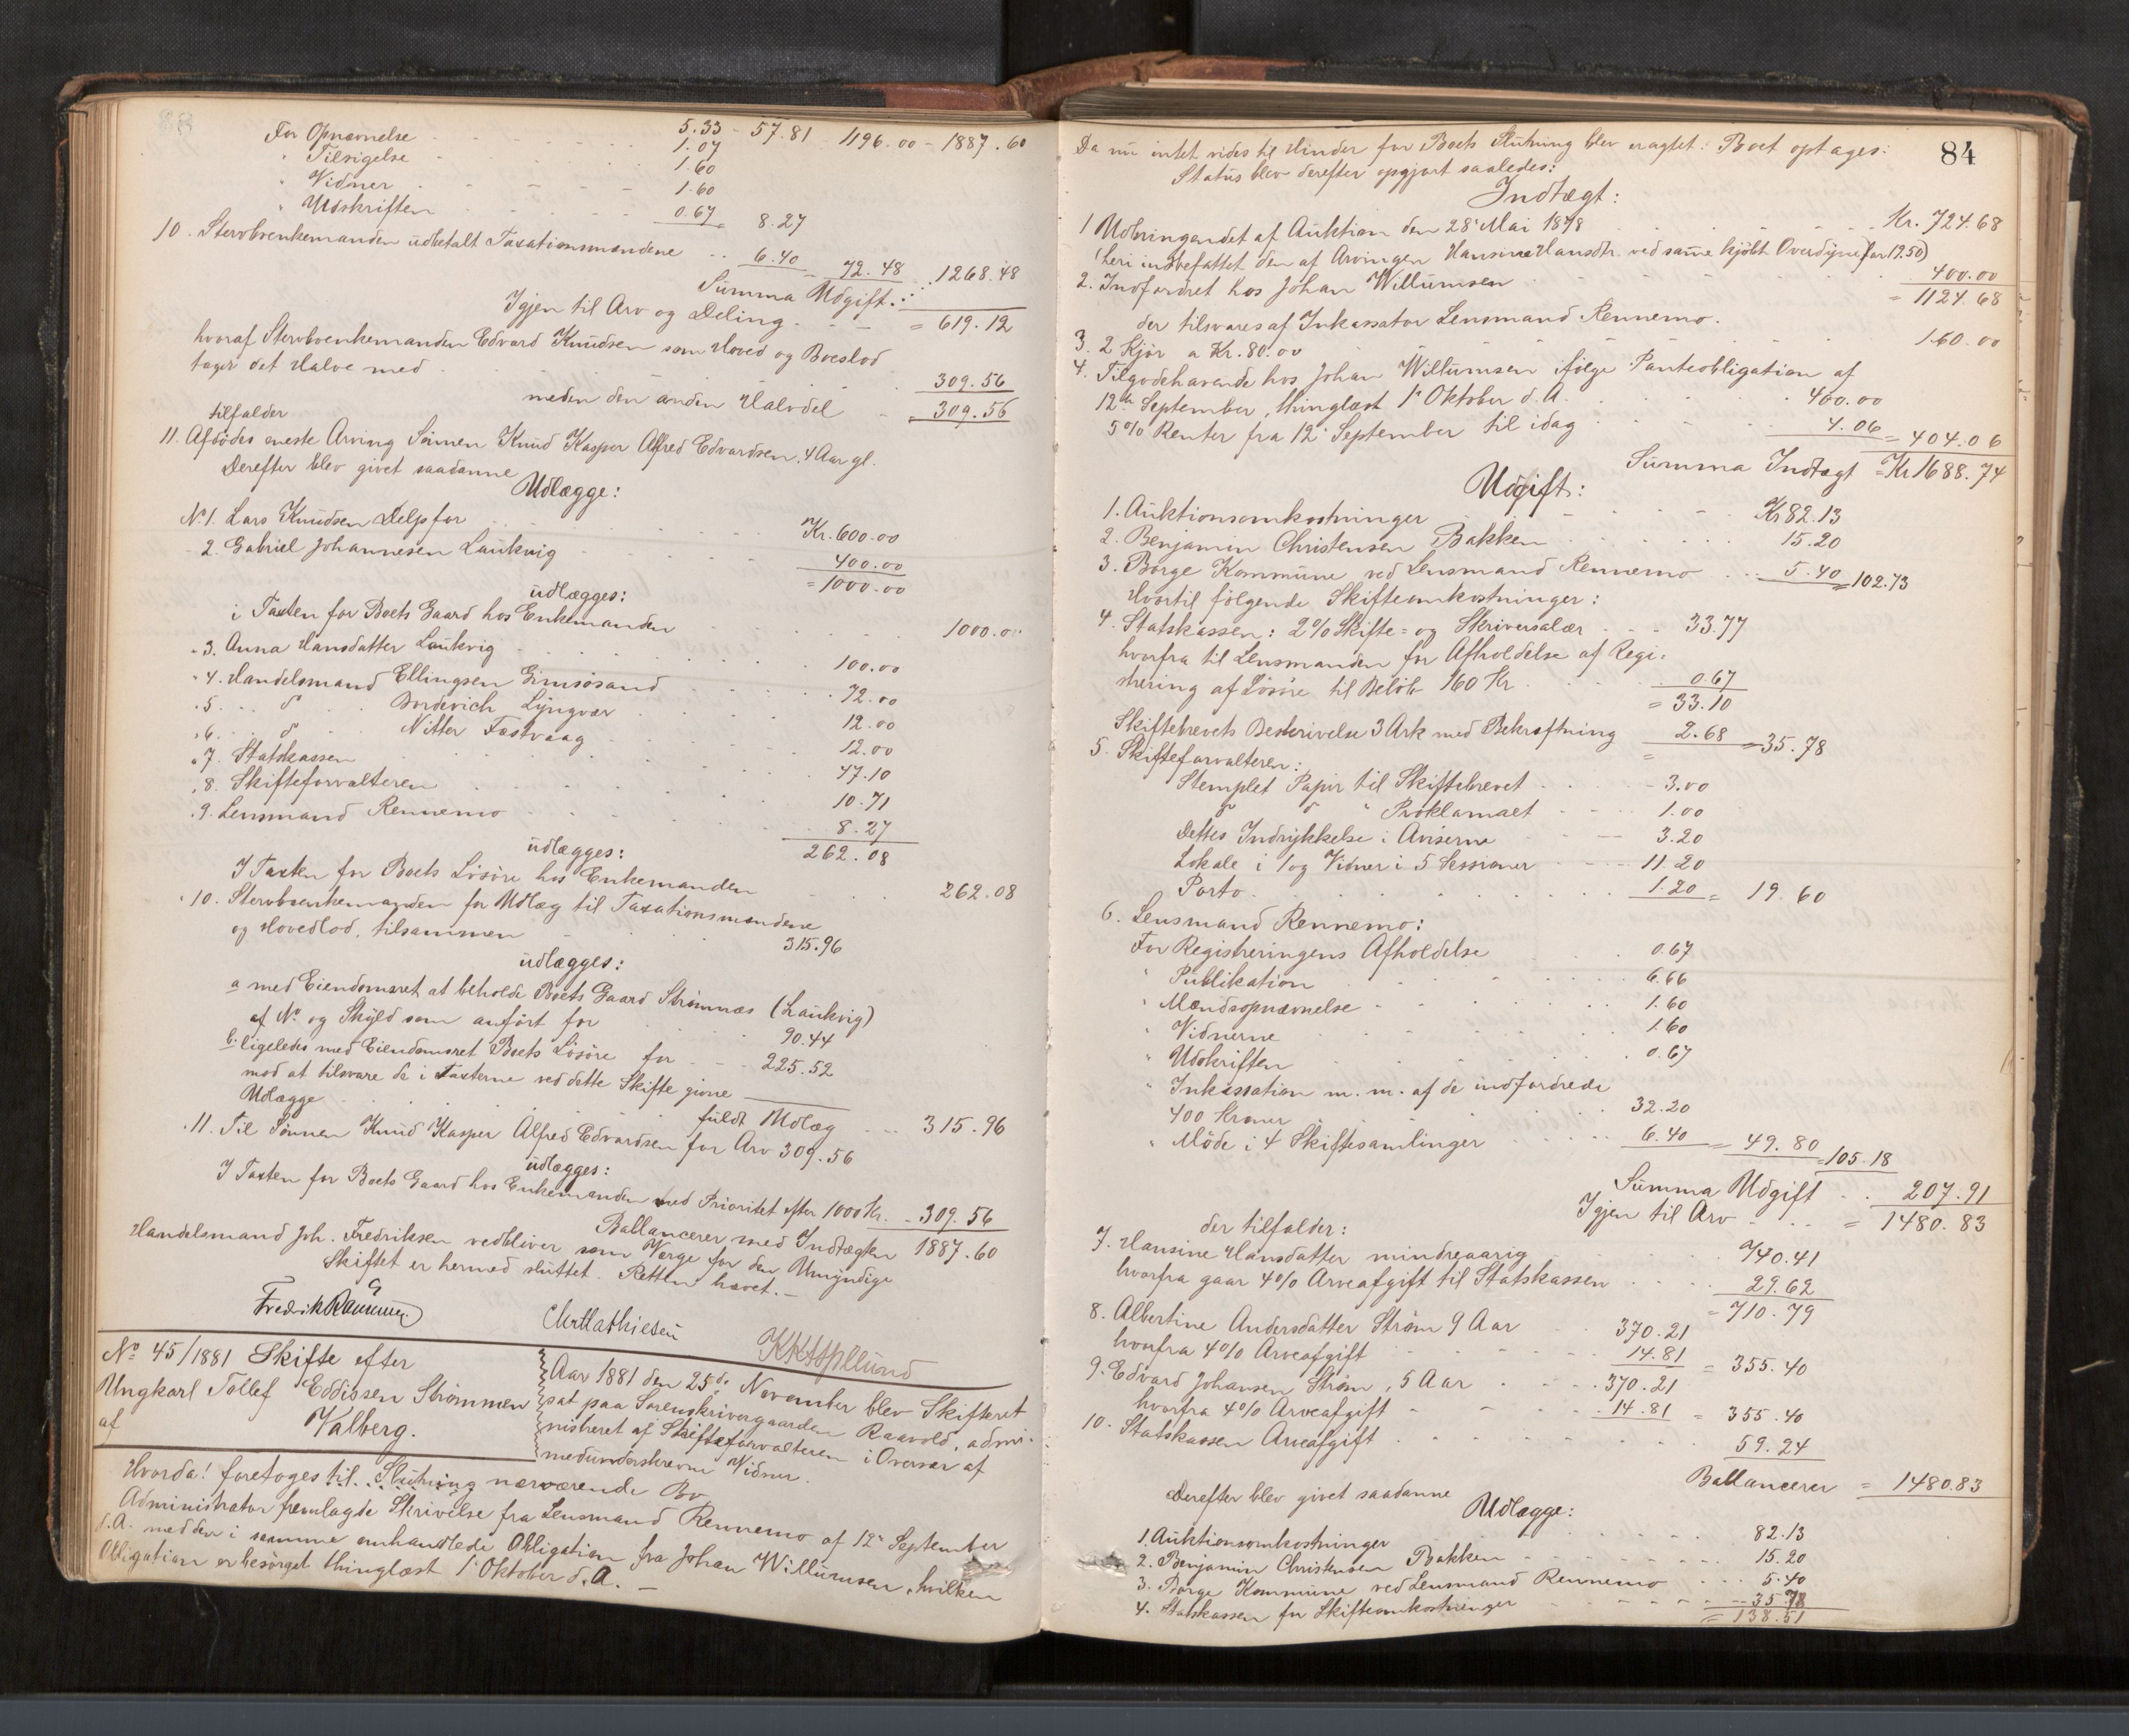 For Opnævnelse 5.33 - 57.81 1196.00 - 1887.60
" Tilsigelse 1.07
" Vidner 1.60
" Udskriften 1.60
0.67 = 8.27
10. Stervboenkemanden udbetalt Taxationsmændene 6.40 = 72.48 1268.48
Summa Udgift
Igjen til Arv og Deling = 619.12
hvoraf Stervboenkemanden Edvard Knudsen som Hoved og Boeslod
tager det Halve med 309.56
meden den anden Halvdel = 309.56
tilfalder
11. Afdødes eneste Arving Sönnen Knud Kasper Alfred Edvardsen, 4 Aar gl.
Derefter blev givet saadanne
Udlægge:
No 1. Lars Knudsen Delp for Kr. 600.00
" 2. Gabriel Johannesen Laukvig 400.00
= 1000.00
udlægges:
i Taxten for Boets Gaard hos Enkemanden 1000.00
" 3. Anna Hansdatter Laukvig 100.00
" 4. Handelsmand Ellingsen Gimsösand 72.00
" 5. d° Bordevich Lyngvær 12.00
" 6. d° Nitter Fæstvaag 12.00
" 7. Statskassen 47.10
" 8. Skifteforvalteren 10.71
" 9. Lensmand Rennemo 8.27
262.08
udlægges:
I Taxten for Boets Lösöre hos Enkemanden 262.08
" 10. Stervboenkemanden for Udlæg til Taxationsmændene
og Hovedlod, tilsammen 315.96
udlægges:
a med Eiendomsret at beholde Boets Gaard Strömnæs (Laukvig)
af No og Skyld som anfört for 90.44
b. ligeledes med Eiendomsret Boets Lösöre for 225.52
mod at tilsvare de i Taxterne ved dette Skifte givne
Udlægge
fuldt Udlæg 315.96
" 11. Til Sönnen Knud Kasper Alfred Edvardsen for Arv 309.56
udlægges:
I Taxten for Boets Gaard hos Enkemanden med Prioritet efter 1000 Kr. 309.56
Ballancerer med Indtægten 1887.60
Handelsmand Joh. Fredriksen vedbliver som Værge for den Umyndige
Skiftet er hermed sluttet. Retten hævet. —
Chr Mathiesen
No 45/1881 Skifte efter
Ungkarl Tollef Eddissen Strömmen
af Valberg.
Aar 1881 den 25de November blev Skifteret
sat paa Sorenskrivergaarden Raavold, admi-
nistreret af Skifteforvalteren i Overvær af
medunderskrevne Vidner.
Hvorda! foretoges til Slutning nærværende Bo
Administrator fremlagde Skrivelse fra Lensmand Rennemo af 12te September
d.A. med den i samme omhandlede Obligation fra Johan Willumsen, hvilken
Obligation er besörget thinglæst 1' Oktober d.A. —
84
Da nu intet vides til Hinder for Boets Slutning blev eragtet: Boet optages:
Status blev derefter opgjort saaledes:
Indtægt:
1 Udbringendet af Auktion den 28' Mai 1878 Kr. 724.68
(heri indbefattet den af Arvingen Hansine Hansdtr. ved samme kjöbt Overdyne for 12.50)
2. Indfordret hos Johan Willumsen 400.00
= 1124.68
der tilsvares af Inkassator Lensmand Rennemo.
3. 2 Kjör a Kr. 80.00 160.00
4. Tilgodehavende hos Johan Willumsen ifölge Panteobligation af
12te September, thinglæst 1' Oktober d.A. 400.00
5% Renter fra 12' September til idag 4.06 = 404.06
Summa Indtægt = Kr 1688.74
Udgift:
1. Auktionsomkostninger Kr 82.13
2. Benjamin Christensen Bakken 15.20
3. Borge Kommune ved Lensmand Rennemo 5.40 = 102.73
Hvortil fölgende Skifteomkostninger:
4. Statskassen: 2% Skifte= og Skriversalær 33.77
hvorfra til Lensmanden for Afholdelse af Regi-
strering af Lösöre til Belöb 160 Kr 0.67
= 33.10
Skiftebrevets Beskrivelse 3 Ark med Bekræftning 2.68 = 35.78
5. Skifteforvalteren:
Stemplet Papir til Skiftebrevet 3.00
d° d° " Proklamaet 1.00
Dettes Indrykkelse i Aviserne 3.20
Lokale i 1 og Vidner i 5 Sessioner 11.20
Porto 1.20 = 19.60
6. Lensmand Rennemo:
For Registreringens Afholdelse 0.67
" Publikation 6.66
" Mændsopnævnelse 1.60
" Vidnerne 1.60
" Udskriften 0.67
" Inkassation m.m. af de indfordrede
400 Kroner 32.20
" Möde i 4 Skiftesamlinger 6.40 = 49.80 = 105.18
Summa Udgift 207.91
Igjen til Arv = 1480.83
der tilfalder:
7. Hansine Hansdatter mindreaarig 740.41
hvorfra gaar 4% Arveafgift til Statskassen 29.62
= 710.79
8. Albertine Andersdatter Ström 9 Aar 370.21
hvorfra 4% Arveafgift 14.81 = 355.40
9. Edvard Johansen Ström, 5 Aar 370.21
hvorfra 4% Arveafgift 14.81 = 355.40
10. Statskassen Arveafgift 59.24
Ballancerer = 1480.83
Derefter blev givet saadanne
Udlægge:
1. Auktionsomkostninger 82.13
2. Benjamin Christensen Bakken 15.20
3. Borge Kommune ved Lensmand Rennemo 5.40
4. Statskassen for Skifteomkostninger 35.78
= 138.51